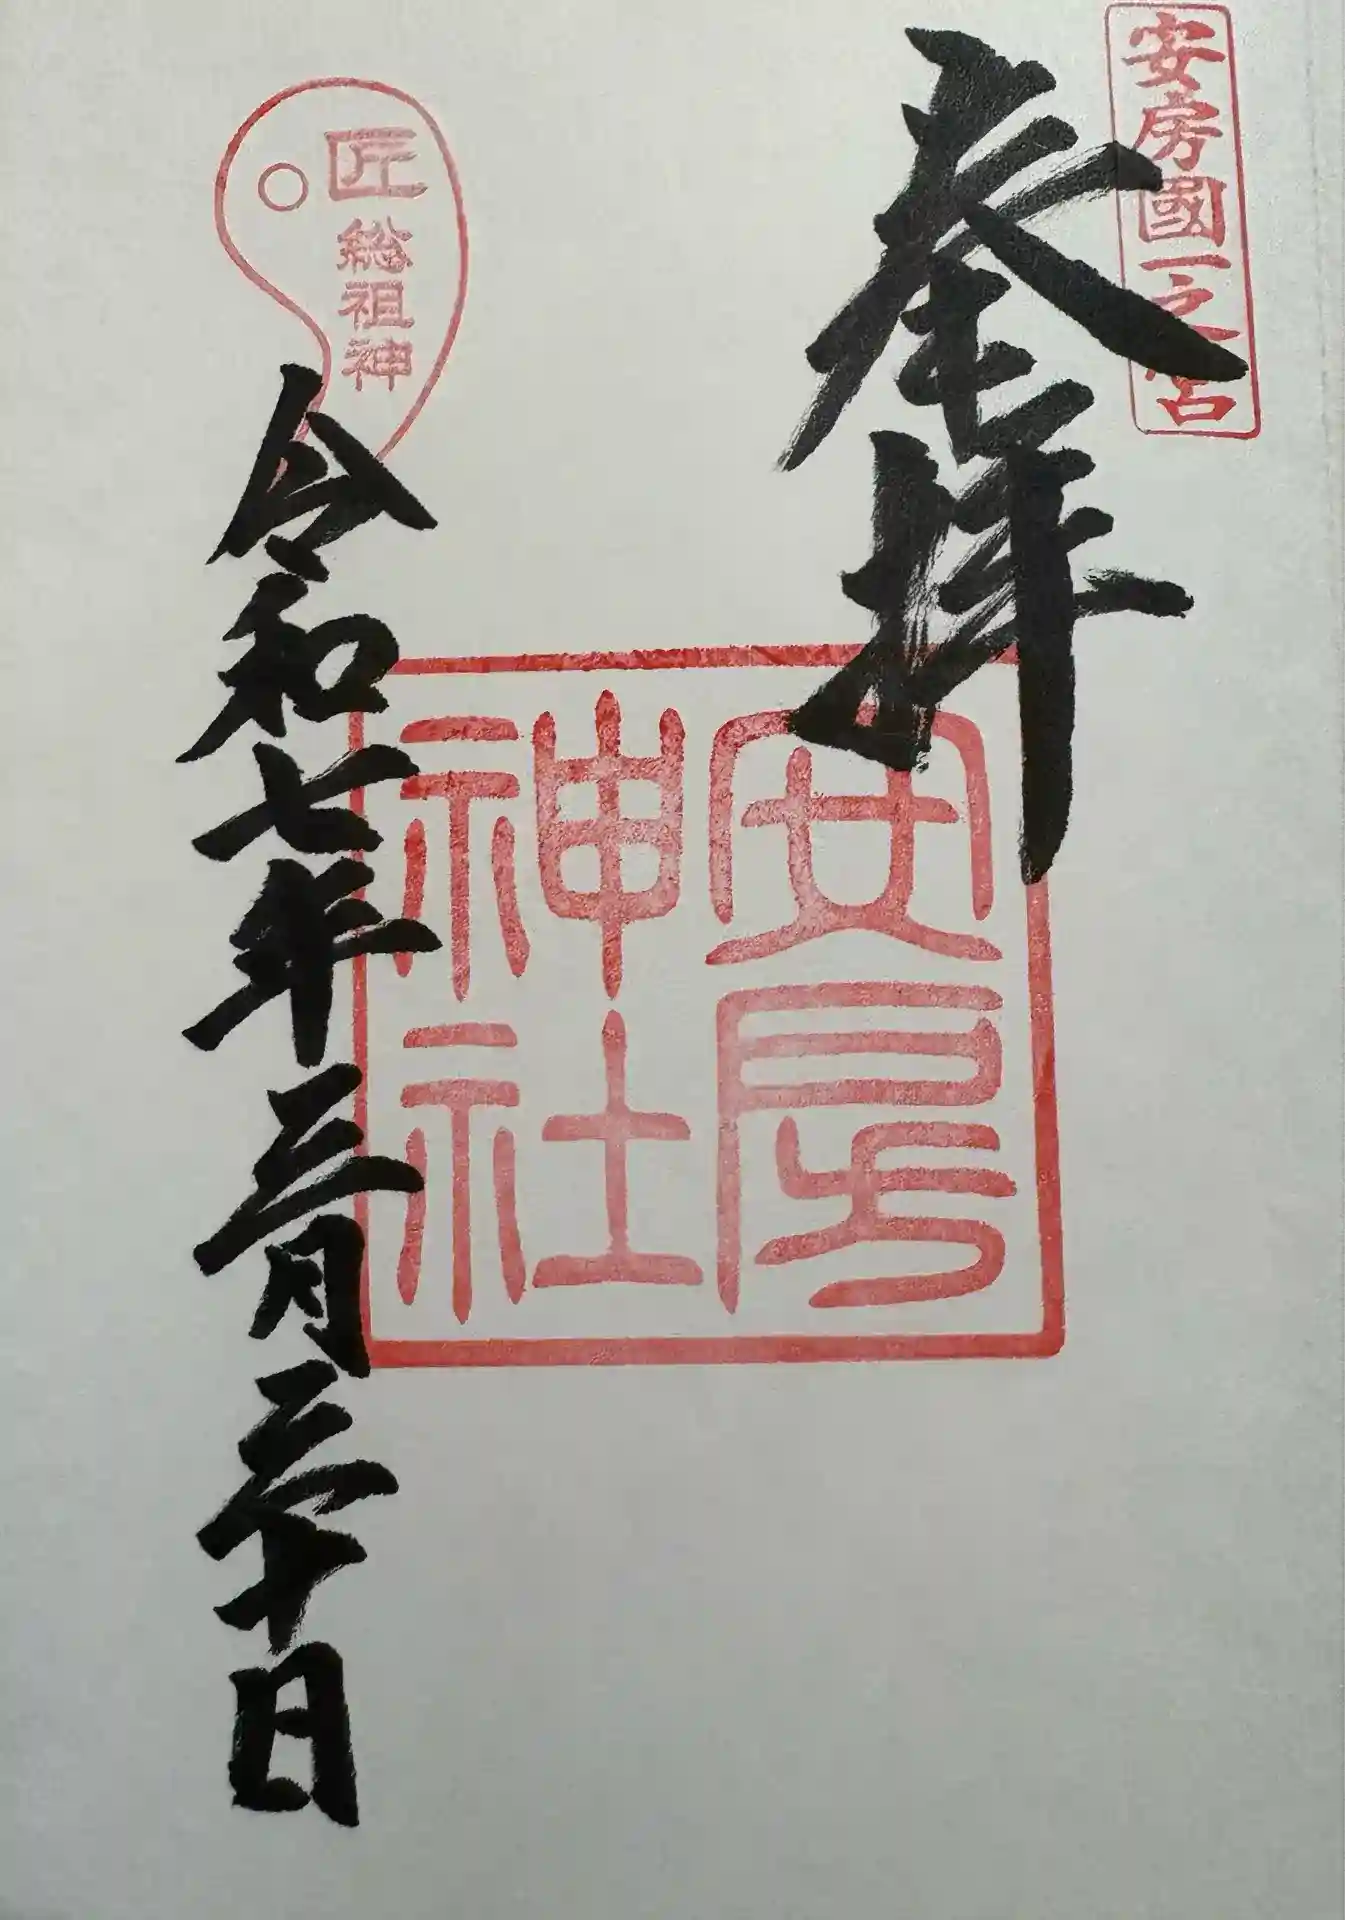 安房國一之宮
奉拝
安房
神社
匠総祖神
令和七年三月三十日